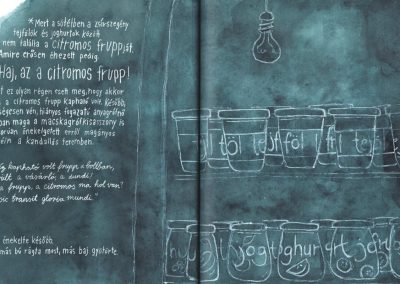 *Mert a sötétben a zsírszegény
tejfölök és joghurtok között
nem találta a citromos fruppját.
Amire erősen éhezett pedig.
Haj, az a citromos frupp!
ez olyan régen esett meg, hogy akkor
a citromos frupp kapható volt. Később,
vén, hiányos fogazatú anyagrófnő
maga a macskagrófkisasszony is
énekelgetett erről magányos
a kandallós teremben.
kapható volt frupp a boltban,
a vásárló, a
a frupp, a citromos ma hol van?
Sic transit gloria mundi
énekelte később,
más bú rágta most, más baj gyötörte.
töl tejf föl tejö
jog ghur rt